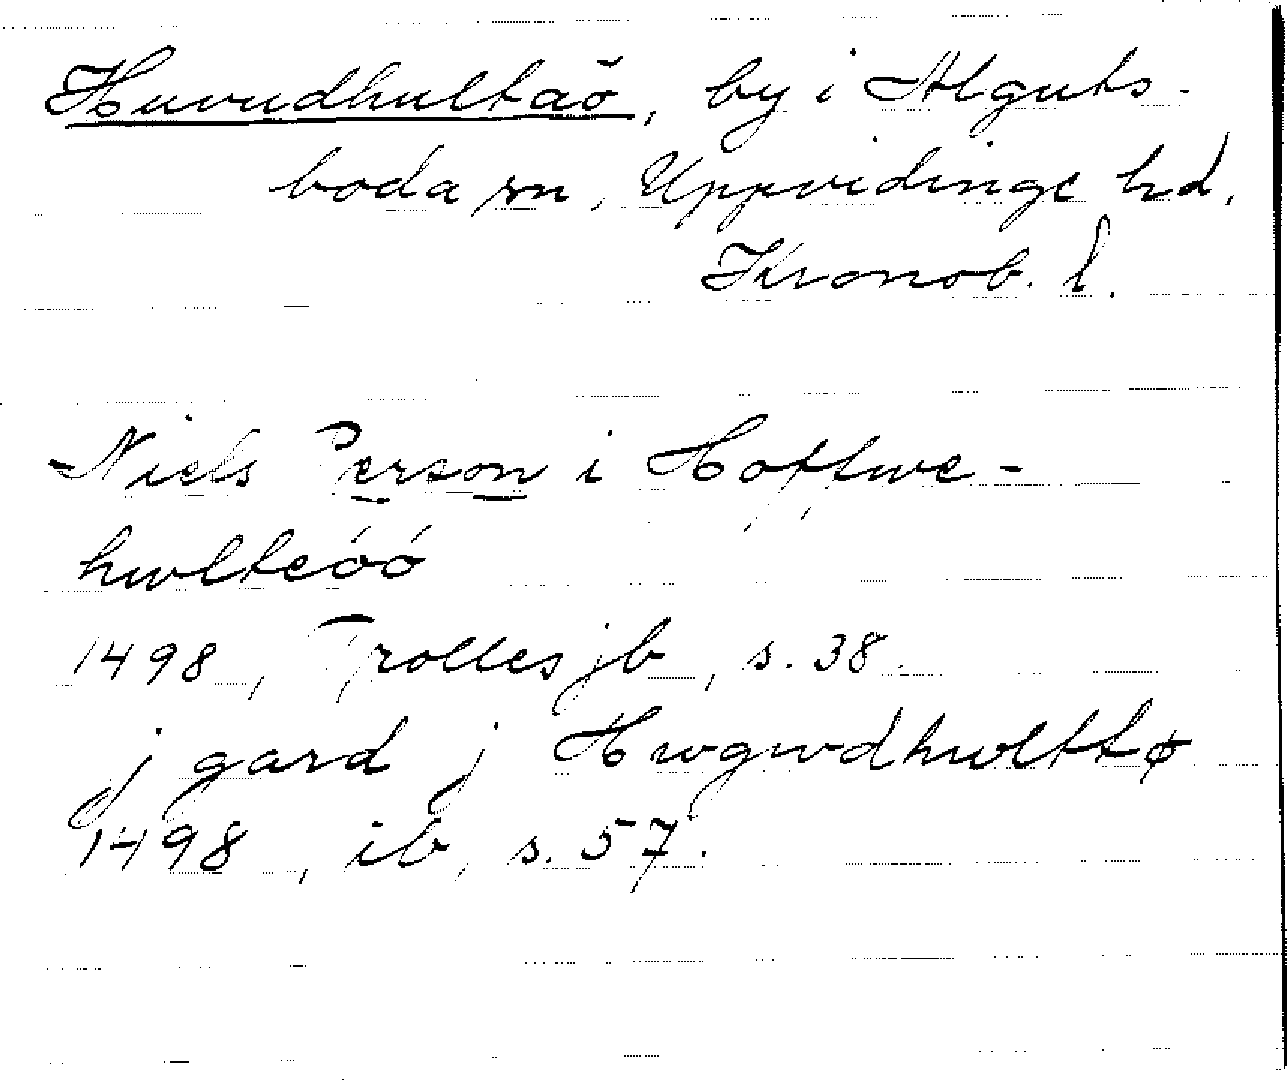 Huvudhultaö, by i Älguts-
boda sn, Uppvidinge hd,
Kronob. l.
Niels Person i Hoffwe-
hwlteóó
1498, Trolles jb, s. 38.
j gard j Hwgwdhwlttø
1498, ib, s. 57.